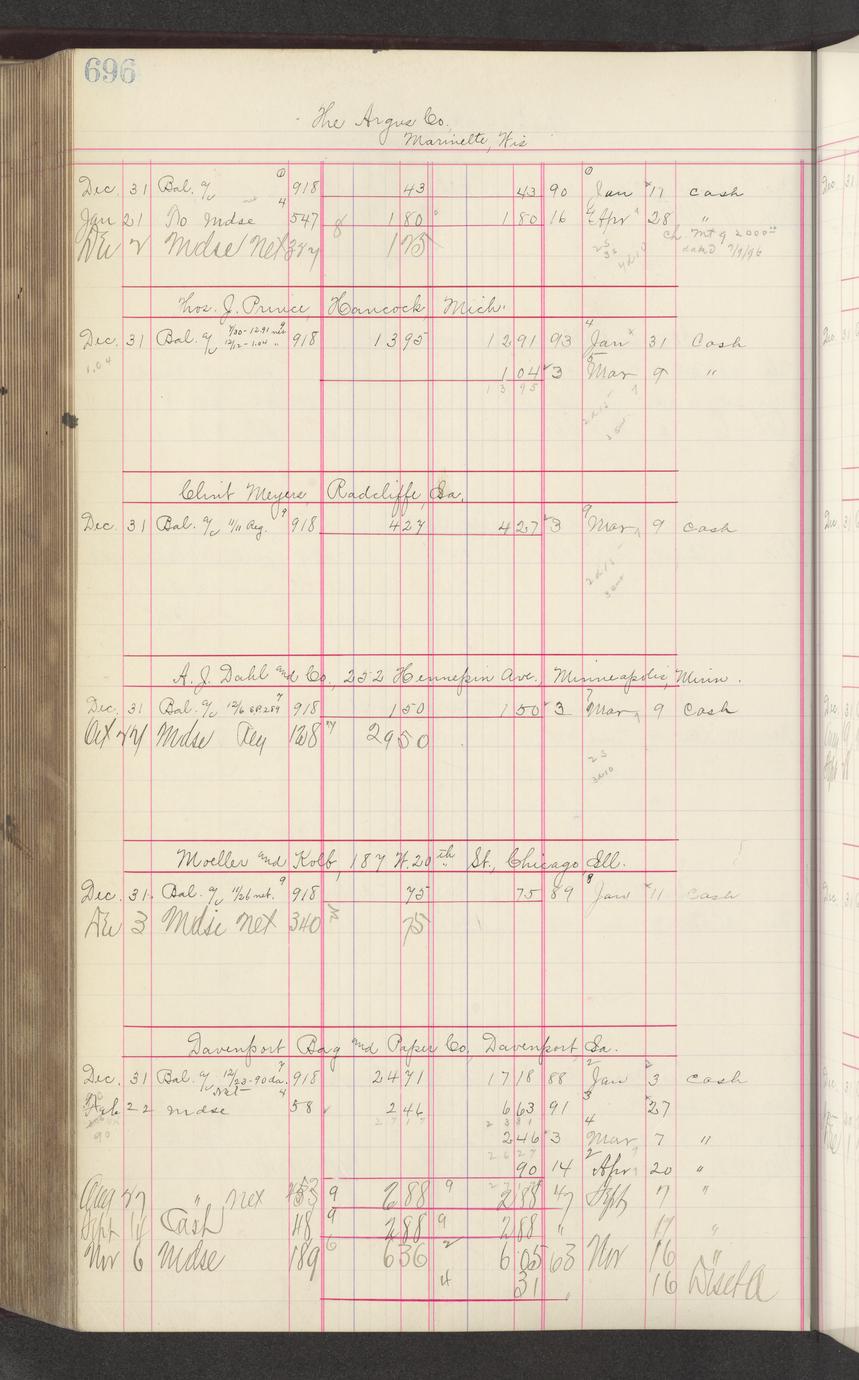 696
The Argus Co.
Marinette, Wis
Dec. 31 Bal. a/c 918 43 43 90 Jan 17 cash
Jan 21 To Mdse 547 180 180 16 Apr 28 "
Dec 2 Mdse net 327 175 Ch. Mt g 2000
dated 7/9/96
Thos. J. Prince, Hancock, Mich.
Dec. 31 Bal. a/c 9/30-12.91 net 12/12-1.04 " 918 1395 1291 93 Jan 31 Cash
1.04 104 3 Mar 9 "
1395
Clint Meyers, Radcliffe, Ia.
Dec. 31 Bal. a/c 11/11 Reg. 918 427 427 3 Mar 9 cash
A. J. Dahl and Co., 252 Hennepin Ave., Minneapolis, Minn.
Dec. 31 Bal. a/c 12/6 918 150 150 3 Mar 9 cash
Oct 24 Mdse Reg 2950
Moeller and Kolb, 187 W. 20th St., Chicago, Ill.
Dec. 31 Bal. a/c 11/26 net. 918 75 75 89 Jan 11 cash
Dec 3 Mdse net 340 75
Davenport Bag and Paper Co., Davenport, Ia.
Dec. 31 Bal. a/c 12/23-90 da. 918 2471 1718 88 Jan 3 cash
Net
Feb 22 mdse 58 246 663 91 27
90 2717 2381
246 3 Mar 7 "
2627
90 14 Apr 20 "
Aug 27 " net 288 288 47 Sept 7 "
Sept 17 Cash 48 288 288 " 17 "
Nov 6 Mdse 189 636 605 63 Nov 16 "
31 16 Disct a